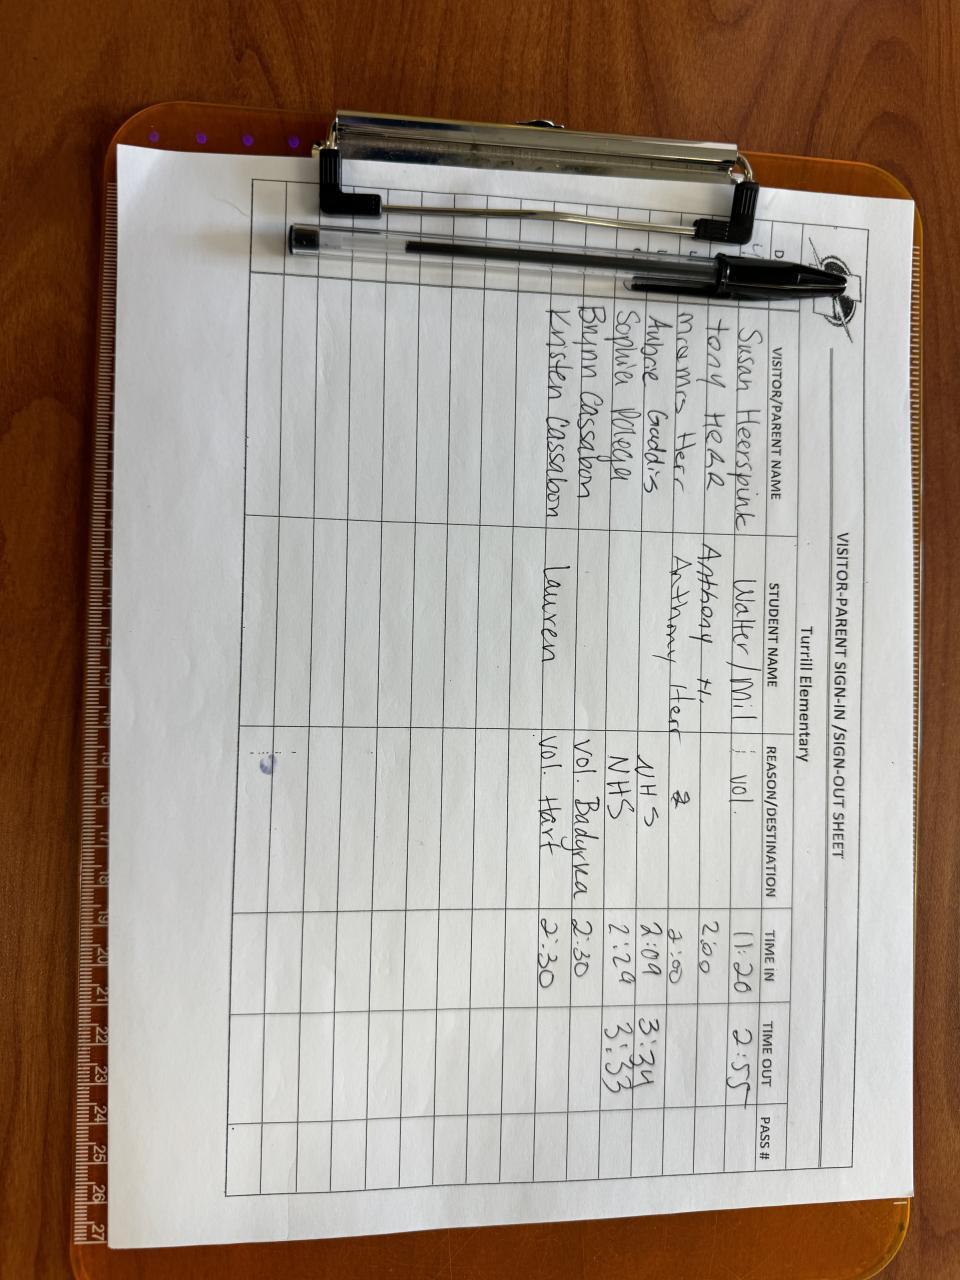 VISITOR-PARENT SIGN-IN /SIGN-OUT SHEET
Turrill Elementary
D VISITOR/PARENT NAME STUDENT NAME REASON/DESTINATION TIME IN TIME OUT PASS #
Susan Heerspink Walter/Mil vol. 11:20 2:55
Tony HERR Anthony H. 2:00
Mr & Mrs Herr Anthony Herr 2:00
Aubrie Gaddis NHS 2:09 3:34
Sophia NHS 2:29 3:33
Brynn Cassabon Vol. Badyrka 2:30
Kristen Cassabon Lauren Vol. Hart 2:30
12 13 14 15 16 17 18 19 20 21 22 23 24 25 26 27